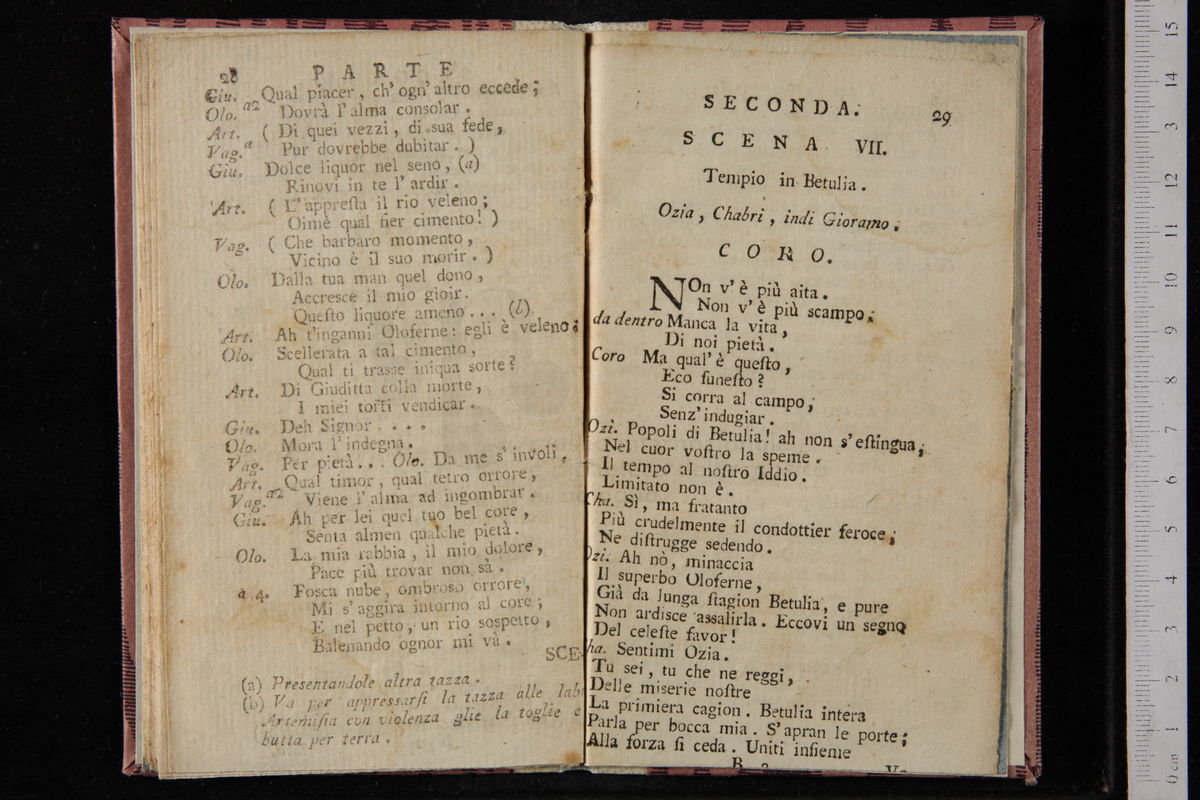 28 PARTE
Giu. Qual piacer, ch' ogn' altro eccede;
Olo. a2 Dovrà l' alma consolar.
Art. ( Di quei vezzi, di sua fede,
Vag. a Pur dovrebbe dubitar. )
Giu. Dolce liquor nel seno, (a)
Rinovi in te l' ardir.
Art. ( L' appreſta il rio veleno;
Oimè qual fier cimento! )
Vag. ( Che barbaro momento,
Vicino è il suo morir. )
Olo. Dalla tua man quel dono,
Accresce il mio gioir.
Queſto liquore ameno... (b)
Art. Ah t'inganni Oloferne: egli è veleno:
Olo. Scellerata a tal cimento,
Qual ti trasse iniqua sorte?
Art. Di Giuditta colla morte,
I miei torti vendicar.
Giu. Deh Signor....
Olo. Mora l' indegna.
Vag. Per pietà... Olo. Da me s' involi.
Art. Qual timor, qual tetro orrore,
Vag. a2 Viene l' alma ad ingombrar.
Giu. Ah per lei quel tuo bel core,
Senta almen qualche pietà.
Olo. La mia rabbia, il mio dolore,
Pace più trovar non sà.
a 4. Fosca nube, ombroso orrore,
Mi s' aggira intorno al core;
E nel petto, un rio sospetto,
Balenando ognor mi và.
SCE-
(a) Presentandole altra tazza.
(b) Va per appressarſi la tazza alle lab
Artemiſia con violenza glie la toglie e
butta per terra.
SECONDA. 29
SCENA VII.
Tempio in Betulia.
Ozia, Chabri, indi Gioramo.
CORO.
NOn v' è più aita.
Non v' è più scampo;
da dentro Manca la vita,
Di noi pietà.
Coro Ma qual' è queſto,
Eco funeſto?
Si corra al campo;
Senz' indugiar.
Ozi. Popoli di Betulia! ah non s' eſtingua;
Nel cuor voſtro la speme.
Il tempo al noſtro Iddio.
Limitato non è.
Cha. Sì, ma fratanto
Più crudelmente il condottier feroce;
Ne diſtrugge sedendo.
Ozi. Ah nò, minaccia
Il superbo Oloferne,
Già da lunga ſtagion Betulia, e pure
Non ardisce assalirla. Eccovi un segno
Del celeſte favor!
ha. Sentimi Ozia.
Tu sei, tu che ne reggi,
Delle miserie noſtre
La primiera cagion. Betulia intera
Parla per bocca mia. S' apran le porte;
Alla forza ſi ceda. Uniti inſieme